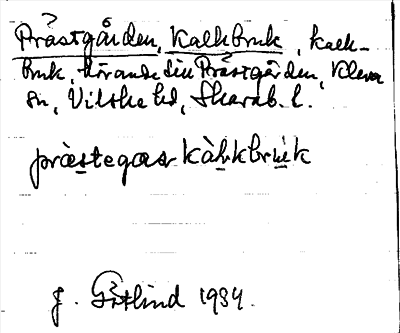 Prästgården, Kalkbruk, kalk-
bruk, hörande till Prästgården, Kleva
sn, Vilske hd, Skarab. l.
præstegaar kàlkbrùk
J. Götlind 1934.